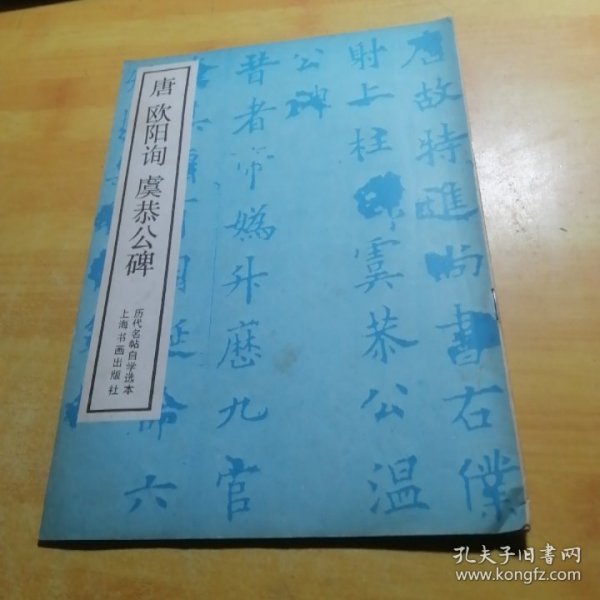 唐 欧阳询 虞恭公碑
历代名帖自学选本
上海书画出版社
唐故特進尚書右僕
射上柱虞恭公温
公碑
昔者帝媯升歷九官
命六
孔夫子旧书网
www.kongfz.com